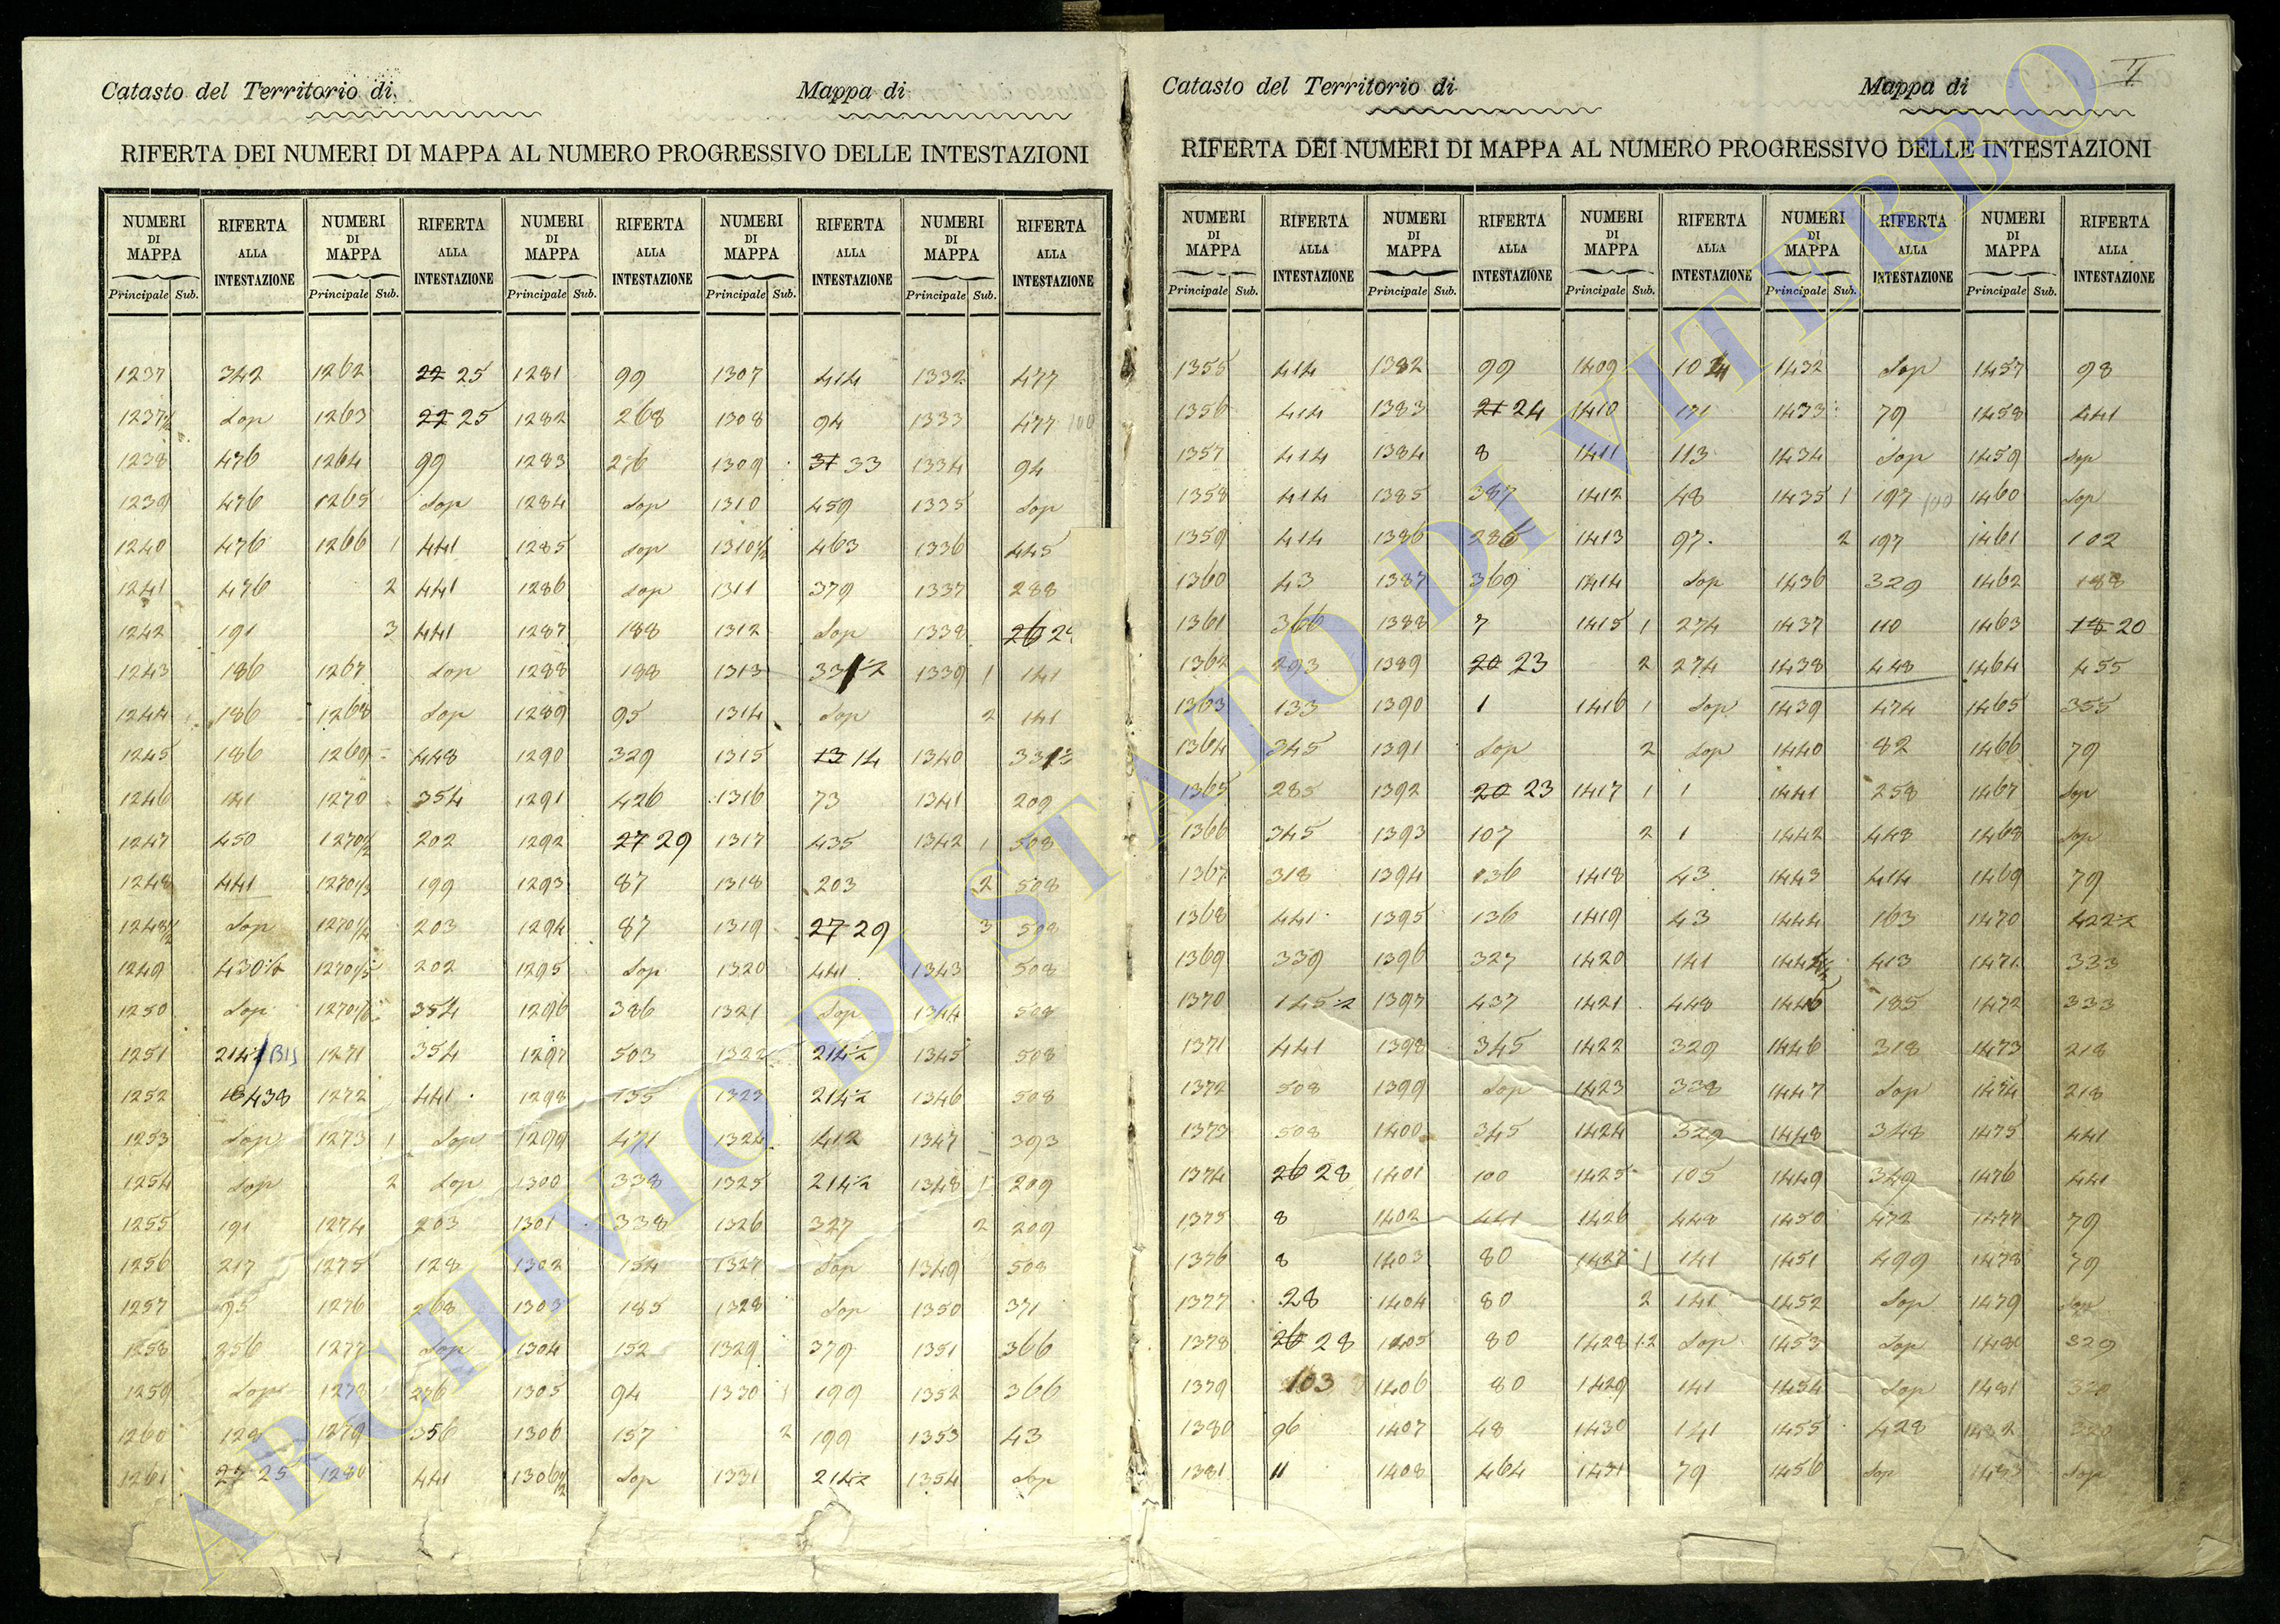 Catasto del Territorio di Mappa di
RIFERTA DEI NUMERI DI MAPPA AL NUMERO PROGRESSIVO DELLE INTESTAZIONI
NUMERI DI MAPPA RIFERTA ALLA INTESTAZIONE NUMERI DI MAPPA RIFERTA ALLA INTESTAZIONE NUMERI DI MAPPA RIFERTA ALLA INTESTAZIONE NUMERI DI MAPPA RIFERTA ALLA INTESTAZIONE NUMERI DI MAPPA RIFERTA ALLA INTESTAZIONE
Principale Sub. Principale Sub. Principale Sub. Principale Sub. Principale Sub.
1237 342 1262 22 25 1281 99 1307 414 1332 477
1237 1/2 Sop 1263 22 25 1282 268 1308 94 1333 477 100
1238 476 1264 99 1283 276 1309 31 33 1334 94
1239 476 1265 Sop 1284 Sop 1310 459 1335 Sop
1240 476 1266 1 441 1285 Sop 1310 1/2 463 1336 445
1241 476 2 441 1286 Sop 1311 379 1337 288
1242 191 3 441 1287 188 1312 Sop 1338 26
1243 186 1267 Sop 1288 188 1313 1339 1 141
1244 186 1268 Sop 1289 95 1314 Sop 2 141
1245 186 1269 448 1290 329 1315 13 14 1340
1246 141 1270 354 1291 426 1316 73 1341 209
1247 450 1270 1/2 202 1292 27 29 1317 435 1342 1 508
1248 441 1270 1/3 199 1293 87 1318 203 2 508
1248 1/2 Sop 1270 1/4 203 1294 87 1319 27 29 3 508
1249 1270 1/5 202 1295 Sop 1320 441 1343 508
1250 Sop 1270 1/6 354 1296 386 1321 Sop 1344 508
1251 BIS 1271 354 1297 503 1322 214 1/2 1345 508
1252 438 1272 441 1298 135 1323 214 1/2 1346 508
1253 Sop 1273 1 Sop 1299 471 1324 412 1347 393
1254 Sop 2 Sop 1300 338 1325 214 1/2 1348 1 209
1255 191 1274 203 1301 338 1326 327 2 209
1256 217 1275 128 1302 154 1327 Sop 1349 508
1257 95 1276 268 1303 185 1328 Sop 1350 371
1258 256 1277 Sop 1304 152 1329 379 1351 366
1259 Sop 1278 276 1305 94 1330 1 199 1352 366
1260 128 1279 356 1306 157 2 199 1353 43
1261 25 1280 441 1306 1/2 Sop 1331 214 1/2 1354 Sop
Catasto del Territorio di Mappa di
RIFERTA DEI NUMERI DI MAPPA AL NUMERO PROGRESSIVO DELLE INTESTAZIONI
NUMERI DI MAPPA RIFERTA ALLA INTESTAZIONE NUMERI DI MAPPA RIFERTA ALLA INTESTAZIONE NUMERI DI MAPPA RIFERTA ALLA INTESTAZIONE NUMERI DI MAPPA RIFERTA ALLA INTESTAZIONE NUMERI DI MAPPA RIFERTA ALLA INTESTAZIONE
Principale Sub. Principale Sub. Principale Sub. Principale Sub. Principale Sub.
1355 414 1382 99 1409 1432 Sop 1457 98
1356 414 1383 21 24 1410 171 1433 79 1458 441
1357 414 1384 8 1411 113 1434 Sop 1459 Sop
1358 414 1385 387 1412 48 1435 1 197 100 1460 Sop
1359 414 1386 286 1413 97 2 197 1461 102
1360 43 1387 369 1414 Sop 1436 329 1462 188
1361 366 1388 7 1415 1 274 1437 110 1463 18 20
1362 293 1389 20 23 2 274 1438 448 1464 455
1363 133 1390 1 1416 1 Sop 1439 474 1465 355
1364 345 1391 Sop 2 Sop 1440 82 1466 79
1365 285 1392 20 23 1417 1 1 1441 258 1467 Sop
1366 345 1393 107 2 1 1442 448 1468 Sop
1367 318 1394 136 1418 43 1443 414 1469 79
1368 441 1395 136 1419 43 1444 163 1470 422 1/2
1369 339 1396 327 1420 141 1444 1/2 413 1471 333
1370 145 1/2 1397 437 1421 448 1445 185 1472 333
1371 441 1398 345 1422 329 1446 318 1473 218
1372 508 1399 Sop 1423 338 1447 Sop 1474 218
1373 508 1400 345 1424 329 1448 348 1475 441
1374 26 28 1401 100 1425 105 1449 349 1476 441
1375 8 1402 441 1426 448 1450 472 1477 79
1376 8 1403 80 1427 1 141 1451 499 1478 79
1377 28 1404 80 2 141 1452 Sop 1479 Sop
1378 26 28 1405 80 1428 1.2 Sop 1453 Sop 1480 329
1379 103 1406 80 1429 141 1454 Sop 1481
1380 96 1407 48 1430 141 1455 428 1482
1381 11 1408 464 1431 79 1456 Sop 1483 Sop
ARCHIVIO DI STATO DI VITERBO